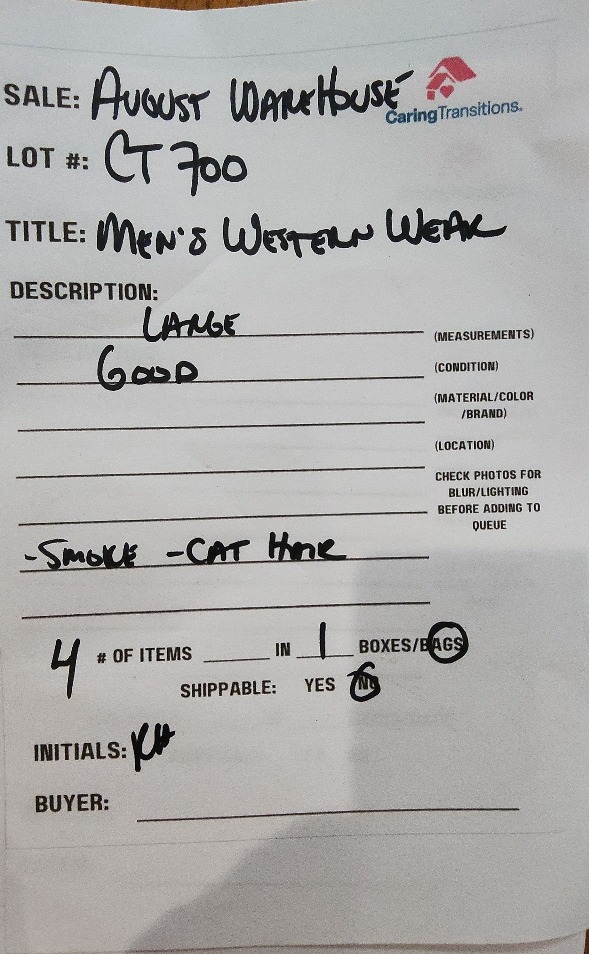 SALE: AUGUST WAREHOUSE
CaringTransitions.
LOT #: CT 700
TITLE: MEN'S WESTERN WEAR
DESCRIPTION:
LARGE (MEASUREMENTS)
GOOD (CONDITION)
(MATERIAL/COLOR
/BRAND)
(LOCATION)
CHECK PHOTOS FOR
BLUR/LIGHTING
BEFORE ADDING TO
QUEUE
-SMOKE -CAT HAIR
4 # OF ITEMS IN 1 BOXES/BAGS
SHIPPABLE: YES NO
INITIALS: KH
BUYER: